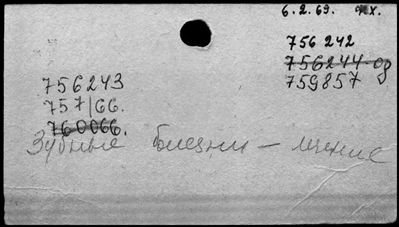 6.2.69. чх.
756 242
756244 ор
759857
756243
757/66.
760066.
Зубные блесни – мение